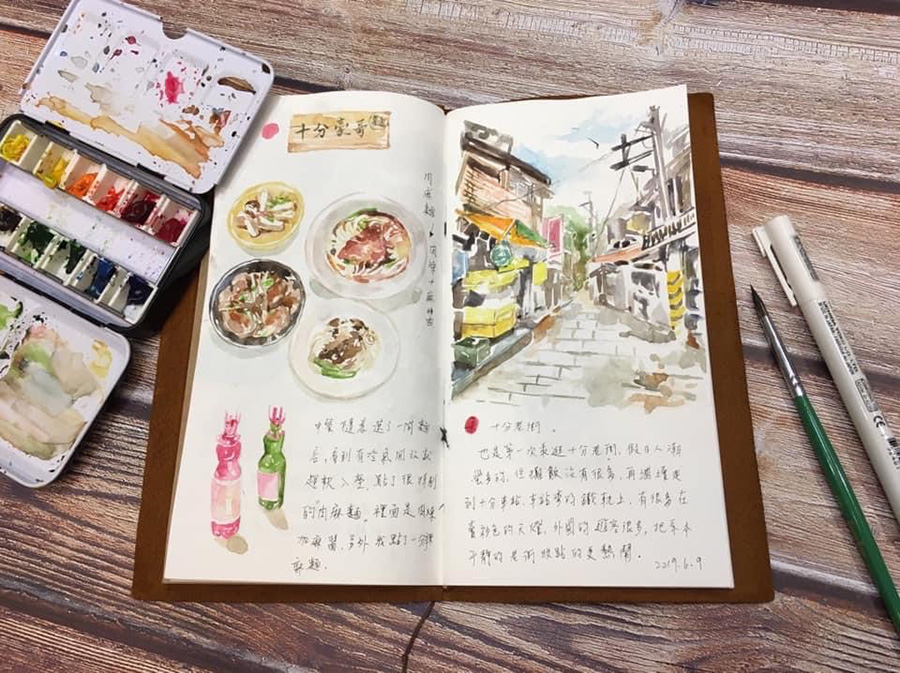 十分豪哥
肉麻麵
中餐隨意選了一間麵
店,看到有空氣開放
趕快入座,點了很特別
的"肉麻麵"。裡面是肉燥
加麻醬,另外我點了一份
麻麵.
十分老街.
也是第一次來逛十分老街,假日人潮
蠻多的,但攤販沒有很多,再隨道走
到十分車站,車站旁的鐵軌上,有很多在
賣彩色的天燈,外國的遊客很多,把原本
平靜的老街妝點的更熱鬧.
2019.6.9